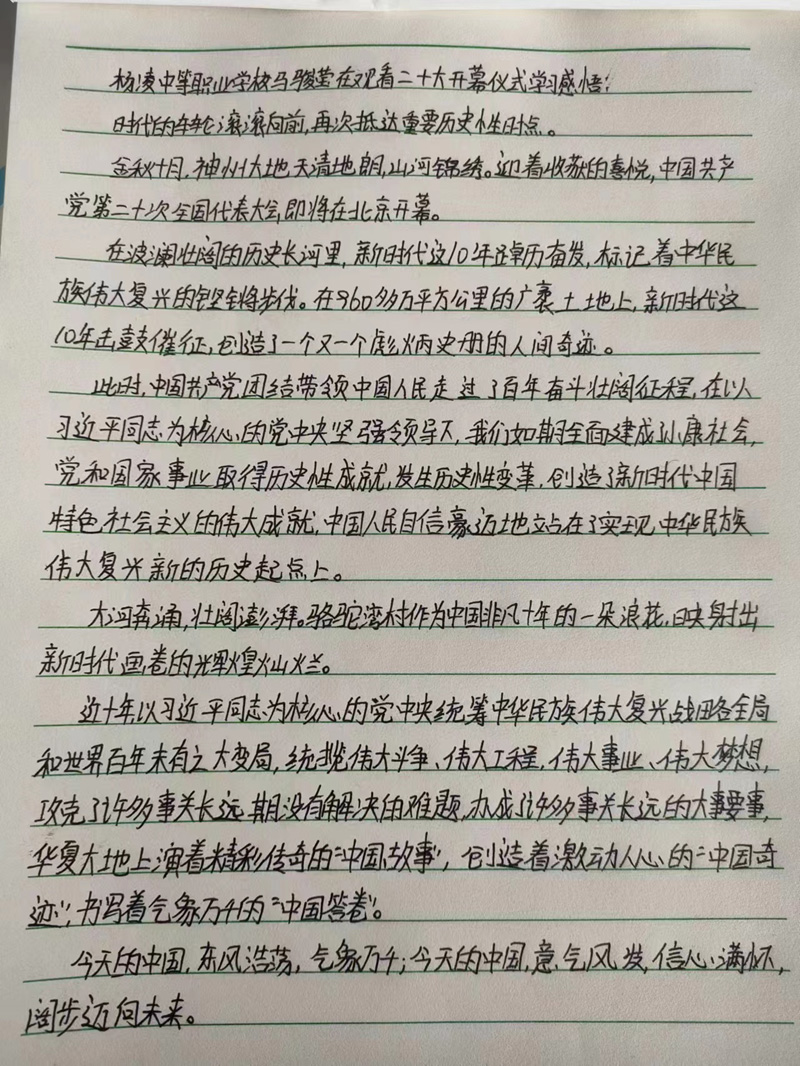 杨凌中等职业学校马骏莹在观看二十大开幕仪式学习感悟:
时代的车轮滚滚向前,再次抵达重要历史性时点。
金秋十月,神州大地天清地朗,山河锦绣。迎着收获的喜悦,中国共产
党第二十次全国代表大会,即将在北京开幕。
在波澜壮阔的历史长河里,新时代这10年踔厉奋发,标记着中华民
族伟大复兴的铿锵步伐。在960多万平方公里的广袤土地上,新时代这
10年击鼓催征,创造了一个又一个彪炳史册的人间奇迹。
此时,中国共产党团结带领中国人民走过了百年奋斗壮阔征程,在以
习近平同志为核心的党中央坚强领导下,我们如期全面建成小康社会,
党和国家事业取得历史性成就,发生历史性变革,创造了新时代中国
特色社会主义的伟大成就,中国人民自信豪迈地站在了实现中华民族
伟大复兴新的历史起点上。
大河奔涌,壮阔澎湃。骆驼湾村作为中国非凡十年的一朵浪花,映射出
新时代画卷的辉煌灿烂。
近十年以习近平同志为核心的党中央统筹中华民族伟大复兴战略全局
和世界百年未有之大变局,统揽伟大斗争、伟大工程,伟大事业、伟大梦想,
攻克了许多事关长远期没有解决的难题,办成了许多事关长远的大事要事,
华夏大地上演着精彩传奇的“中国故事”,创造着激动人心的“中国奇
迹”,书写着气象万千的“中国答卷”。
今天的中国,东风浩荡,气象万千;今天的中国,意气风发,信心满怀,
阔步迈向未来。